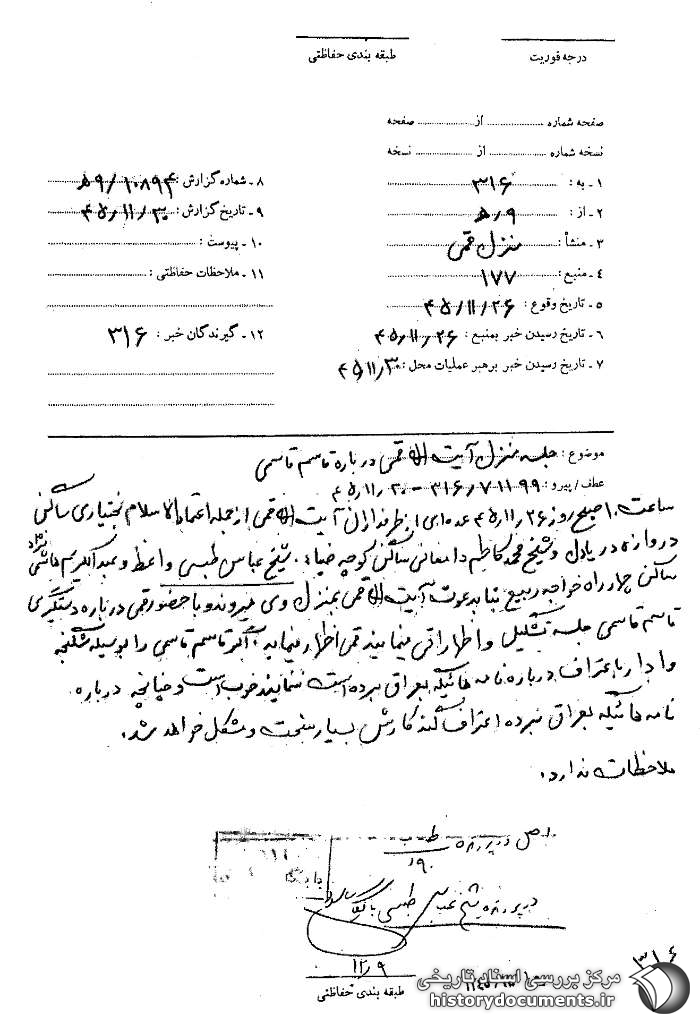 درجه فوریت
طبقه بندی حفاظتی
صفحه شماره از صفحه
نسخه شماره از نسخه
۱ ـ به : ۳۱۶
۲ ـ از : ۹/ه
۳ ـ منشأ : منزل قمی
۴ ـ منبع : ۱۷۷
۵ ـ تاریخ وقوع : ۴۵/۱۱/۲۶
۶ ـ تاریخ رسیدن خبر بمنبع : ۴۵/۱۱/۲۶
۷ ـ تاریخ رسیدن خبر برهبر عملیات محل : ۴۵/۱۱/۳۰
۸ ـ شماره گزارش : ۱۰۸۹۴/۹ه
۹ ـ تاریخ گزارش : ۴۵/۱۱/۳۰
۱۰ ـ پیوست :
۱۱ ـ ملاحظات حفاظتی :
۱۲ ـ گیرندگان خبر : ۳۱۶
موضوع : جلسه منزل آیت اله قمی درباره قاسم قاسمی
عطف / پیرو : ۳۱۶/۷۱۱۹۹ - ۴۵/۱۱/۲۰
ساعت ۱۰ صبح روز ۴۵/۱۱/۲۶ عده‌ای از طرفداران آیت اله قمی از جمله اعتماد الاسلام بختیاری ساکن
دروازه دریادل و شیخ محمد کاظم دامغانی ساکن کوچه ضیاء، شیخ عباس طبسی واعظ و عبدالکریم هاشمی نژاد
ساکن چهار راه خواجه ربیع بنا بدعوت آیت اله قمی بمنزل وی میروند و با حضور قمی درباره دستگیری
قاسم قاسمی جلسه تشکیل و اظهاراتی مینمایند قمی اظهار مینماید، اگر قاسم قاسمی را بوسیله شکنجه
وادار باعتراف درباره نامه هائیکه بعراق نبرده است ننمایند خوب است و چنانچه درباره
نامه هائیکه بعراق نبرده اعتراف کند کارش بسیار سخت و مشکل خواهد شد.
ملاحظات ندارد.
اصل در پرونده طب
۹۰
در پرونده شیخ عباس طبسی بایگانی
۱۲/۹
طبقه بندی حفاظتی
۳۱۶
مرکز بررسی اسناد تاریخی
historydocuments.ir